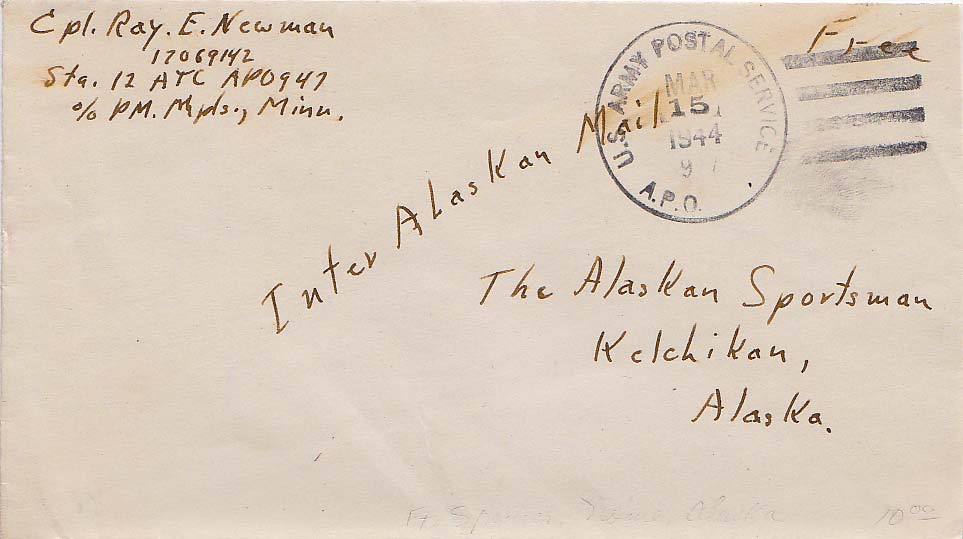 Cpl. Ray. E. Newman
17069142
Sta. 12 ATC APO947
c/o PM. Mpls., Minn.
Free
U.S. ARMY POSTAL SERVICE
MAR
15
1944
9
A.P.O.
Inter Alaskan Mail
The Alaskan Sportsman
Ketchikan,
Alaska.
Nome, Alaska
10 00